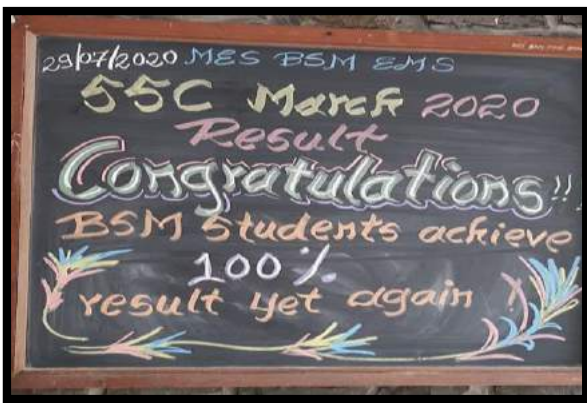 29/07/2020 MES BSM EMS
SSC March 2020
Result
Congratulations!!!
BSM Students achieve
100%
result yet again !